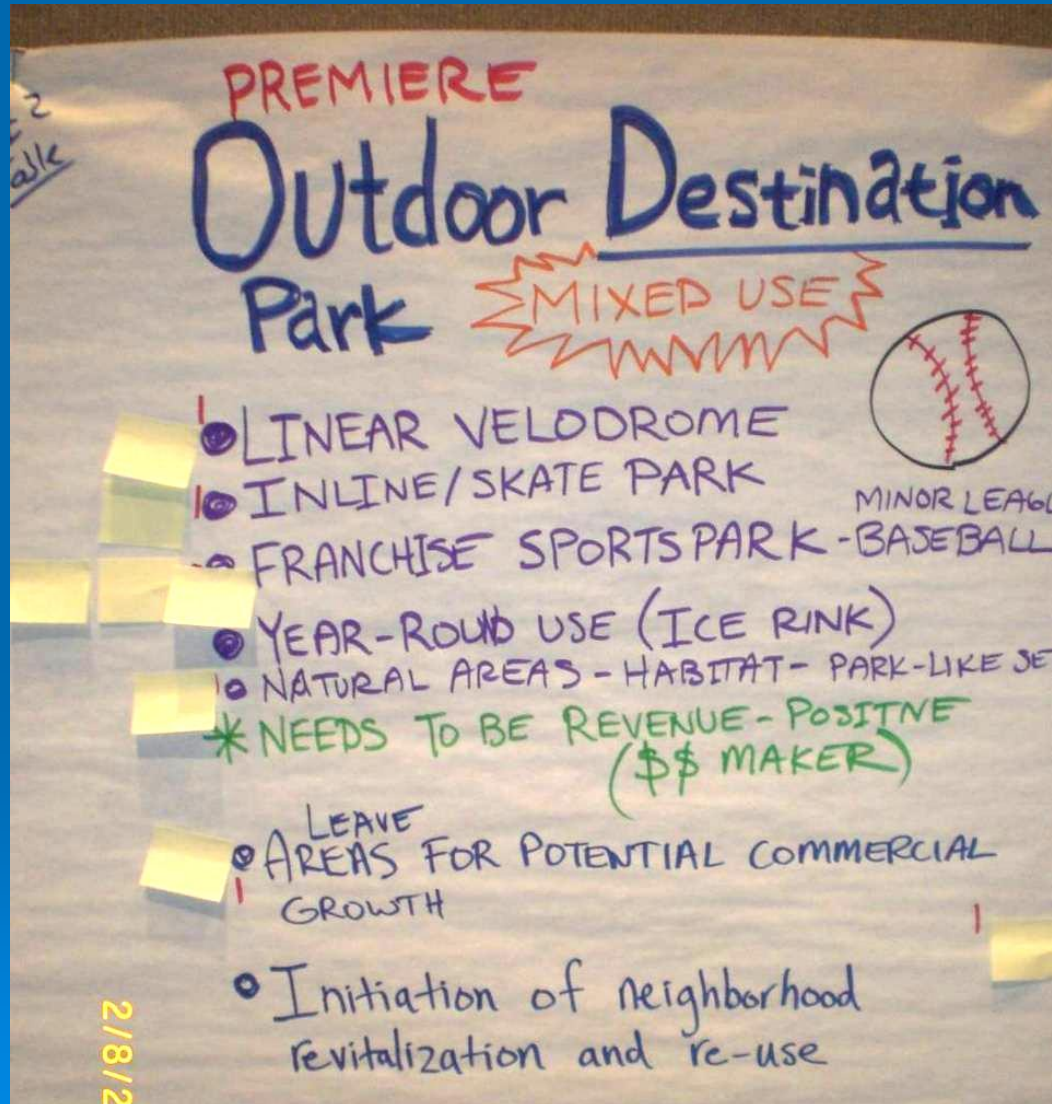 PREMIERE
Outdoor Destination
Park
MIXED USE
LINEAR VELODROME
INLINE/SKATE PARK
MINOR LEAGU
FRANCHISE SPORTS PARK - BASEBALL
YEAR-ROUND USE (ICE RINK)
NATURAL AREAS - HABITAT - PARK-LIKE SET
* NEEDS TO BE REVENUE-POSITIVE
($$ MAKER)
LEAVE
AREAS FOR POTENTIAL COMMERCIAL
GROWTH
Initiation of neighborhood
revitalization and re-use
2/8/2